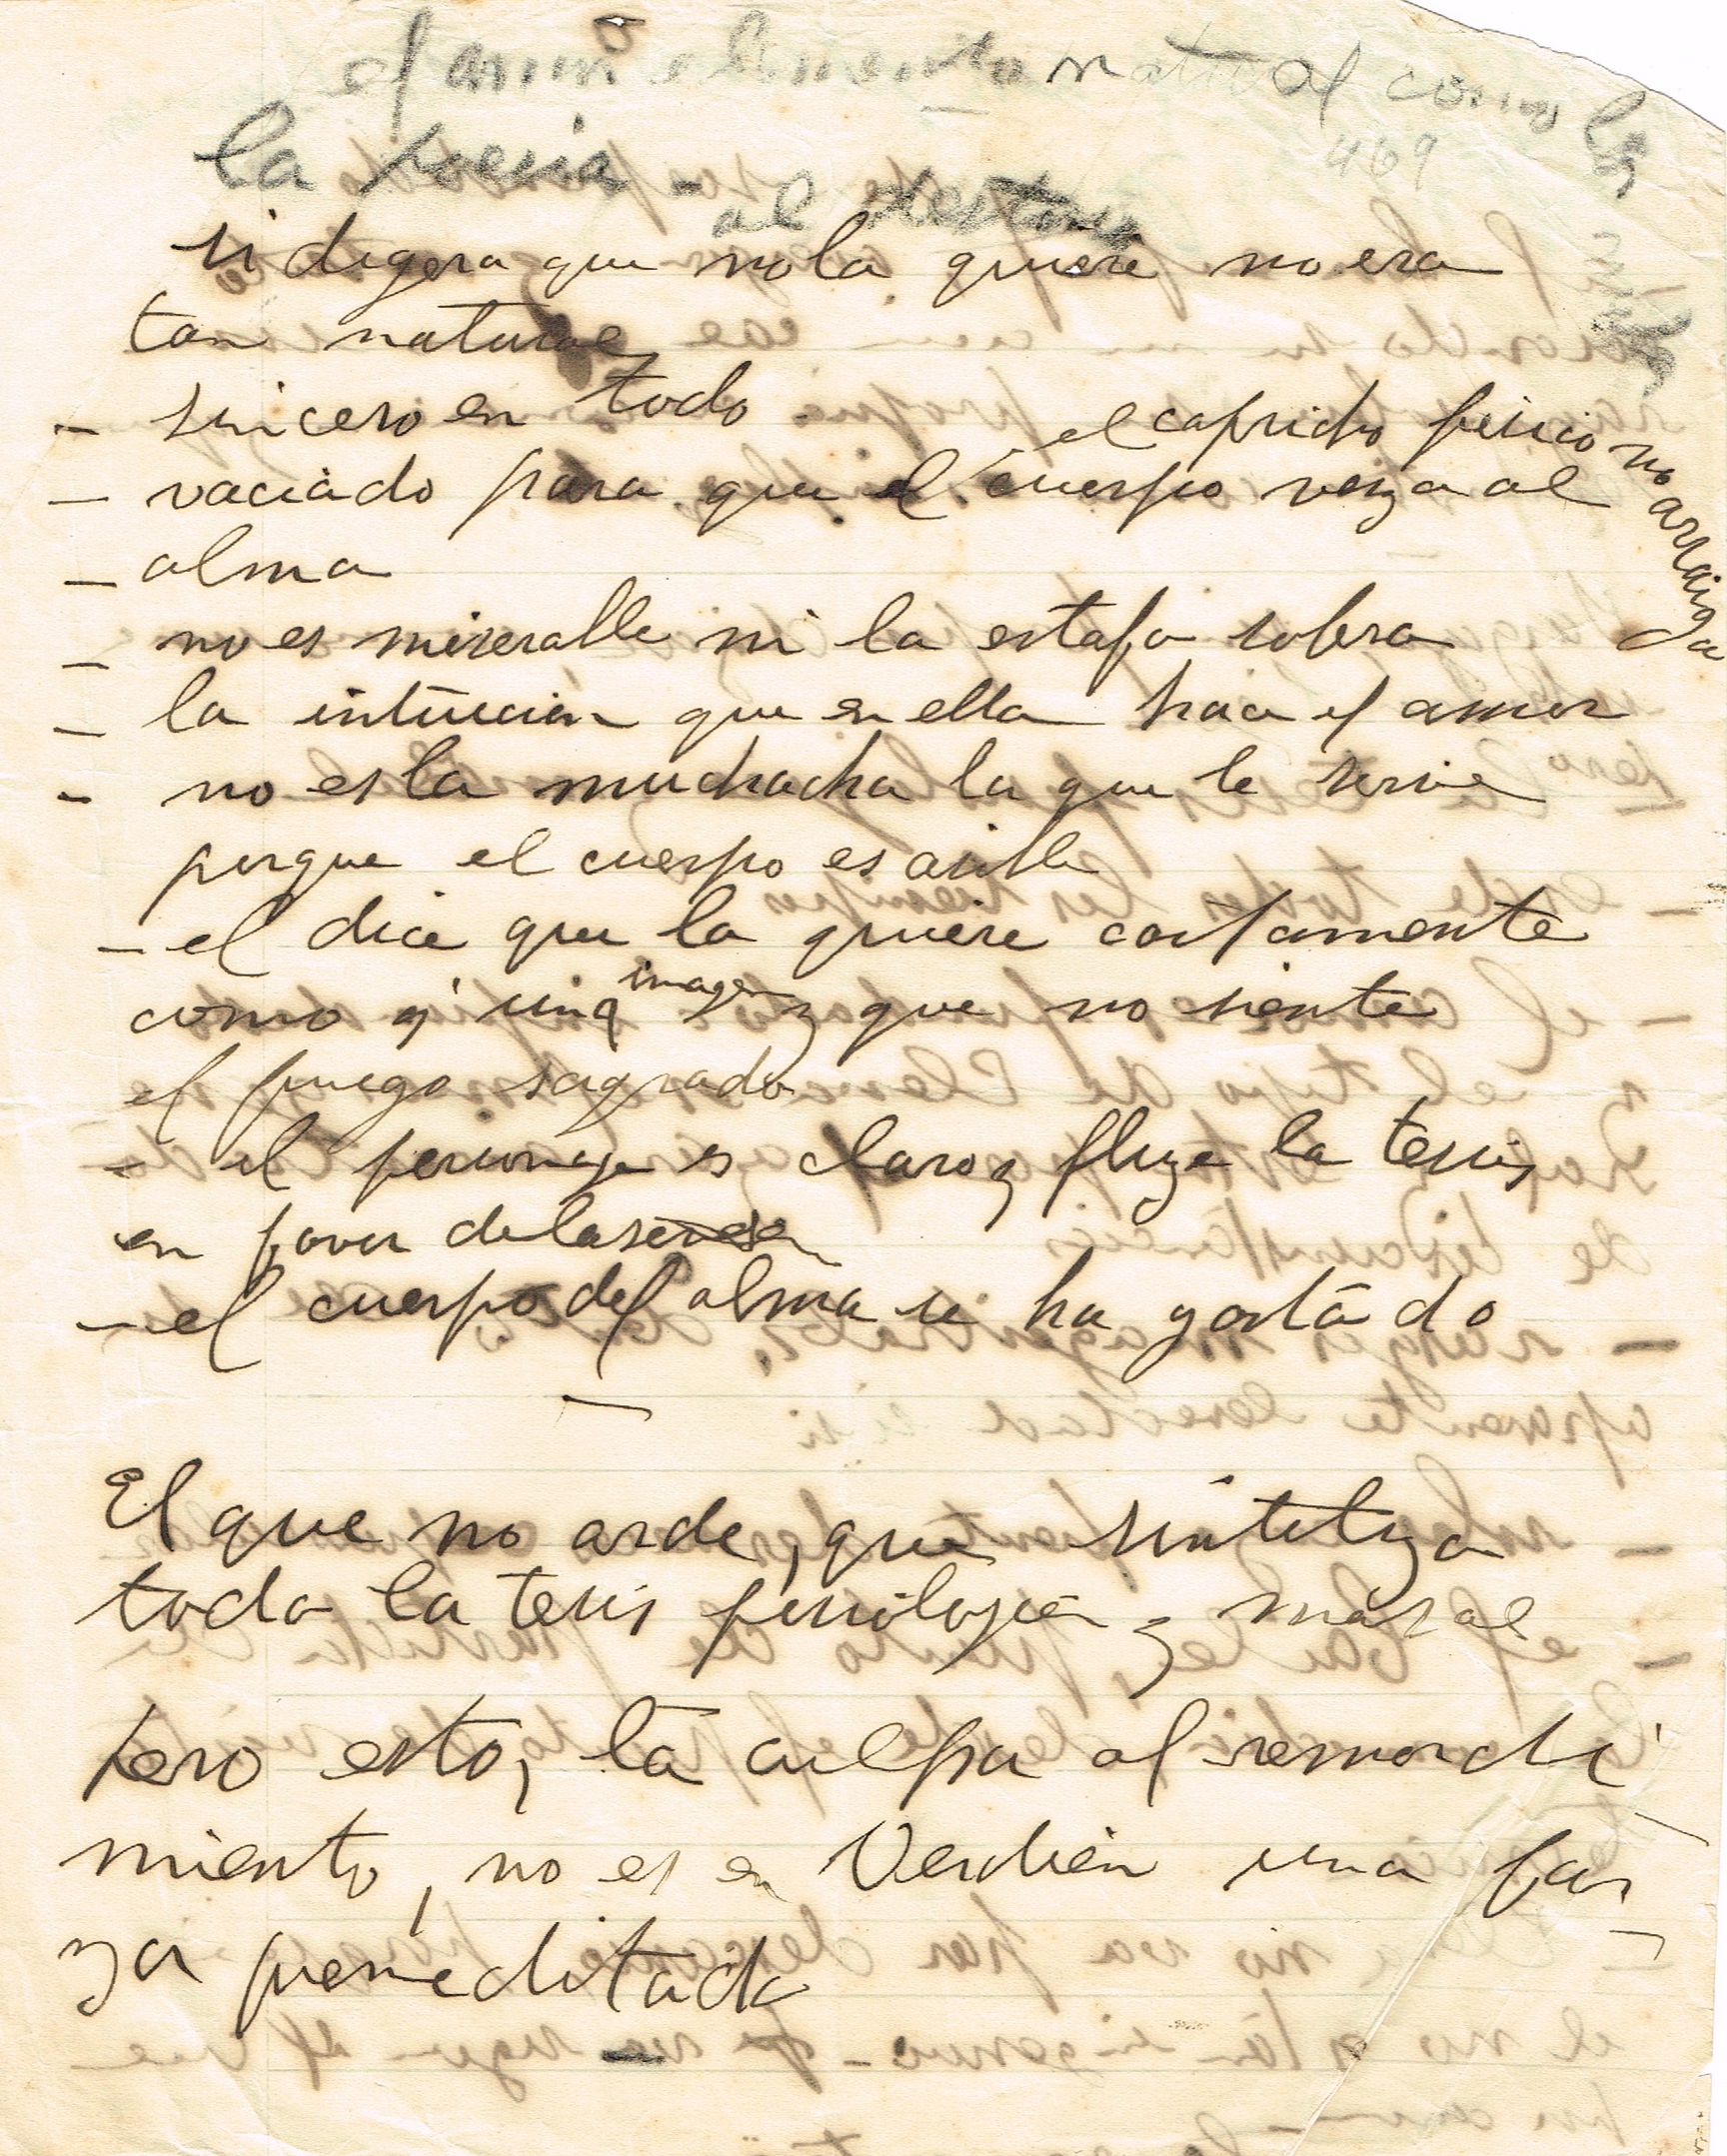 el amor elemento natural como la
la poesia - al destino
469
si digera que no la quiere no era
tan natural
- sincero en todo
el capricho fisico no arraiga
- vaciado para que el cuerpo venza al
- alma
- no es miserable ni la estafa
- la intuicion que en ella hace el amor
- no es la muchacha la que le sirve
porque el cuerpo es
- el dice que la quiere castamente
como a una imagen y que no siente
el fuego sagrado
- el personaje es claro y fluye la tesis
en favor de la
- el cuerpo del alma se ha gastado
El que no arde, que sintetiza
toda la tesis fisiologica y moral
pero esto, la culpa al remordi
miento, no es en Verdien una far
za premeditada